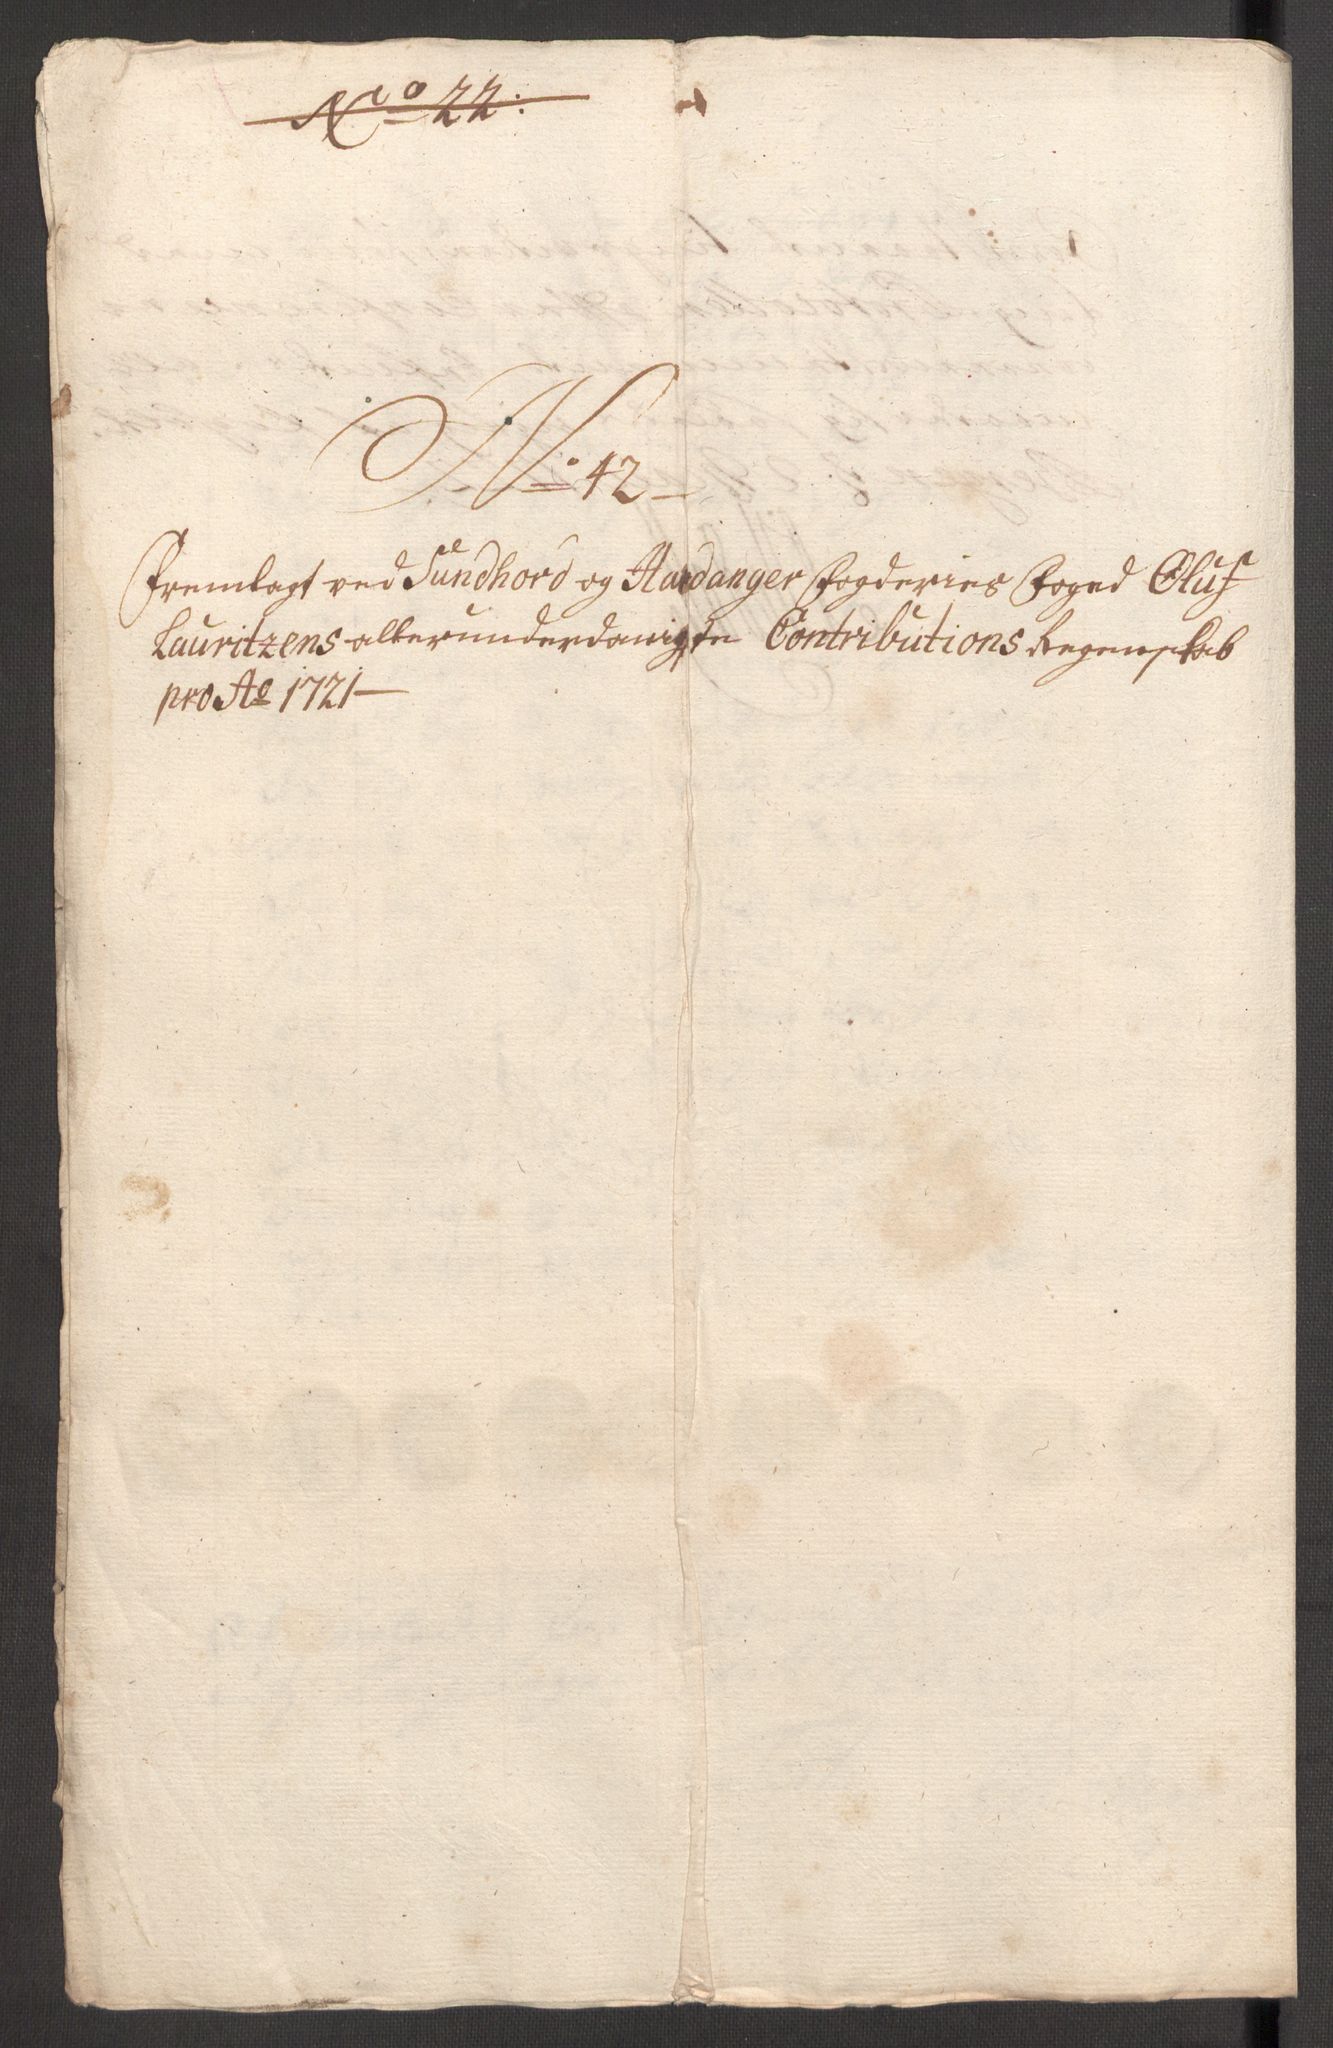 No 22:
No 42
Fremlagt ved Sundhord og Hardanger Fogderies Foged Oluf
Lauritzens allerunderdanigste Contributions Regenskab
pro Ao 1721